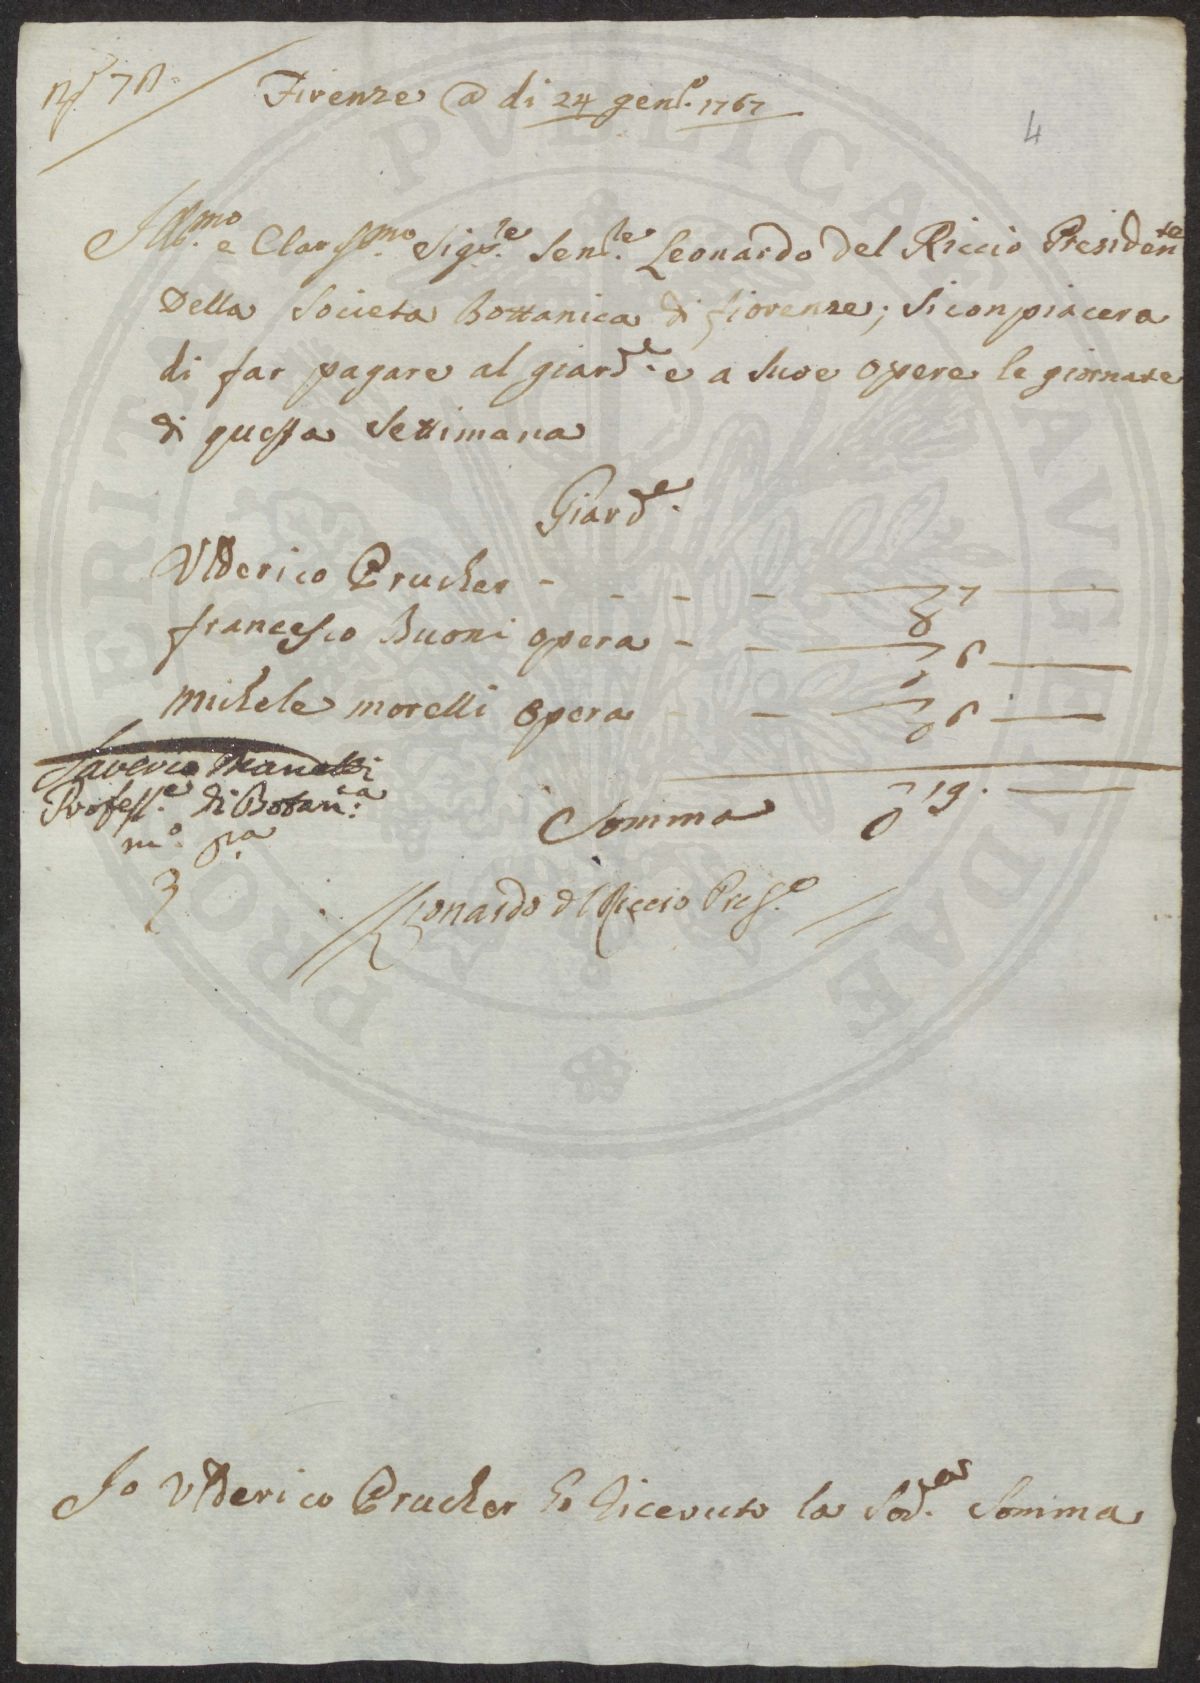 Firenze a di 24 gen.o 1767
4
Ill.mo e Clariss.mo Sig.re Sen.re Leonardo del Riccio Presiden.te
Della Societa Bottanica di fiorenze; Si conpiacera
di far pagare al giard.e e a Suoe opere le giornate
di questa Settimana
Giard.e
Ulderico Prucher - - - - 7
francesco Buoni opera - - 6
Michele morelli opera - - 6
Saverio Manetti
Profess.e di Botan.ca
m.o pa
Somma 19.
Leonardo del Riccio Pres.e
PRO PERITATI PVBLICAE AVGENDAE
Io Ulderico Prucher ho Riceuto la Sod.a Somma